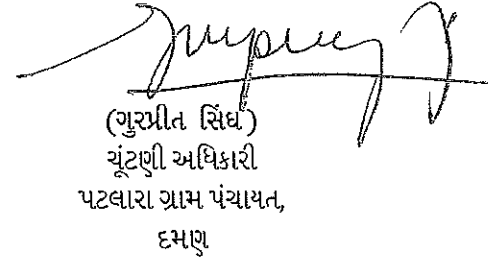 (ગુરપ્રીત સિંઘ)
ચૂંટણી અધિકારી
પટલારા ગ્રામ પંચાયત,
દમણ